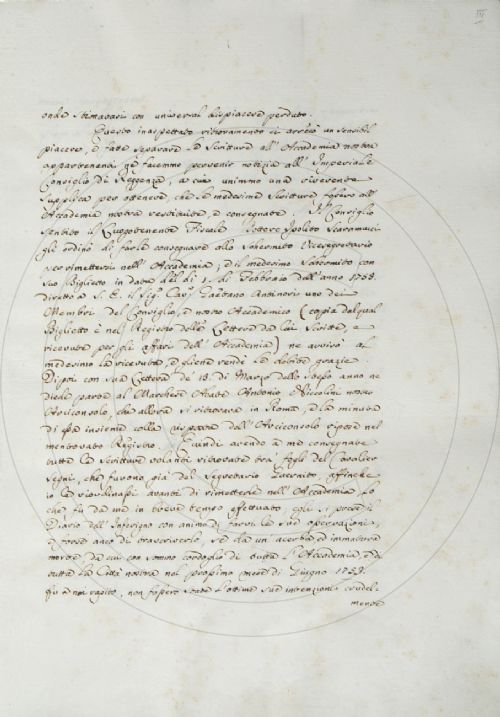 III
onde stimavasi con universal dispiacere perduto.
Questo inaspettato ritrovamento ci arrecò un sensibil
piacere, e fatte separare le Scritture all'Accademia nostra
appartenenti ne facemmo pervenir notizia all'Imperiale
Consiglio di Reggenza, a cui unimmo una riverente
supplica per ottenere, che le medesime Scritture fossero all'
Accademia nostra restituite, e consegnate. Il Consiglio
sentito il Luogotenente Fiscale Dottore Ipolito Scaramucci
gli ordinò di farle consegnare allo Vicesegretario
per rimettersi nell'Accademia; ed il medesimo con
suo Biglietto in data del dì 1. di Febbraio dell'anno 1758.
diretto a S. E. il Sig. Cav. Gaetano Antinori uno dei
Membri del Consiglio, e nostro Accademico (copia del qual
Biglietto è nel Registro delle Lettere da lui scritte, e
ricevute per gli affari dell'Accademia) ne avvisò al
medesimo la ricevuta, e gliene rendé le debite grazie.
Dipoi con sua Lettera de' 18. di Marzo dello stesso anno ne
diede parte al Marchese Abate Antonio Niccolini nostro
Arciconsolo, che allora si ritrovava in Roma, e la minuta
di essa insieme colla risposta dell'Arciconsolo ripose nel
mentovato Registro. Quindi avendo a me consegnate
tutte le scritture volanti ritrovate tra' fogli del Cavalier
Segni, che furono già del Segretario affinché
io le riordinassi avanti di rimetterle nell'Accademia, lo
che fu da me in breve tempo effettuato, egli si prese il
Diario dell'Inferigno con animo di farvi le sue operazioni,
e forse anco di trascriverlo, se da un acerba ed immatura
morte da cui con sommo cordoglio di tutta l'Accademia, e di
tutta la Città nostra nel prossimo mese di Giugno 1758.
fu a noi rapito, non fossero state l'ottime sue intenzioni crudel-
mente